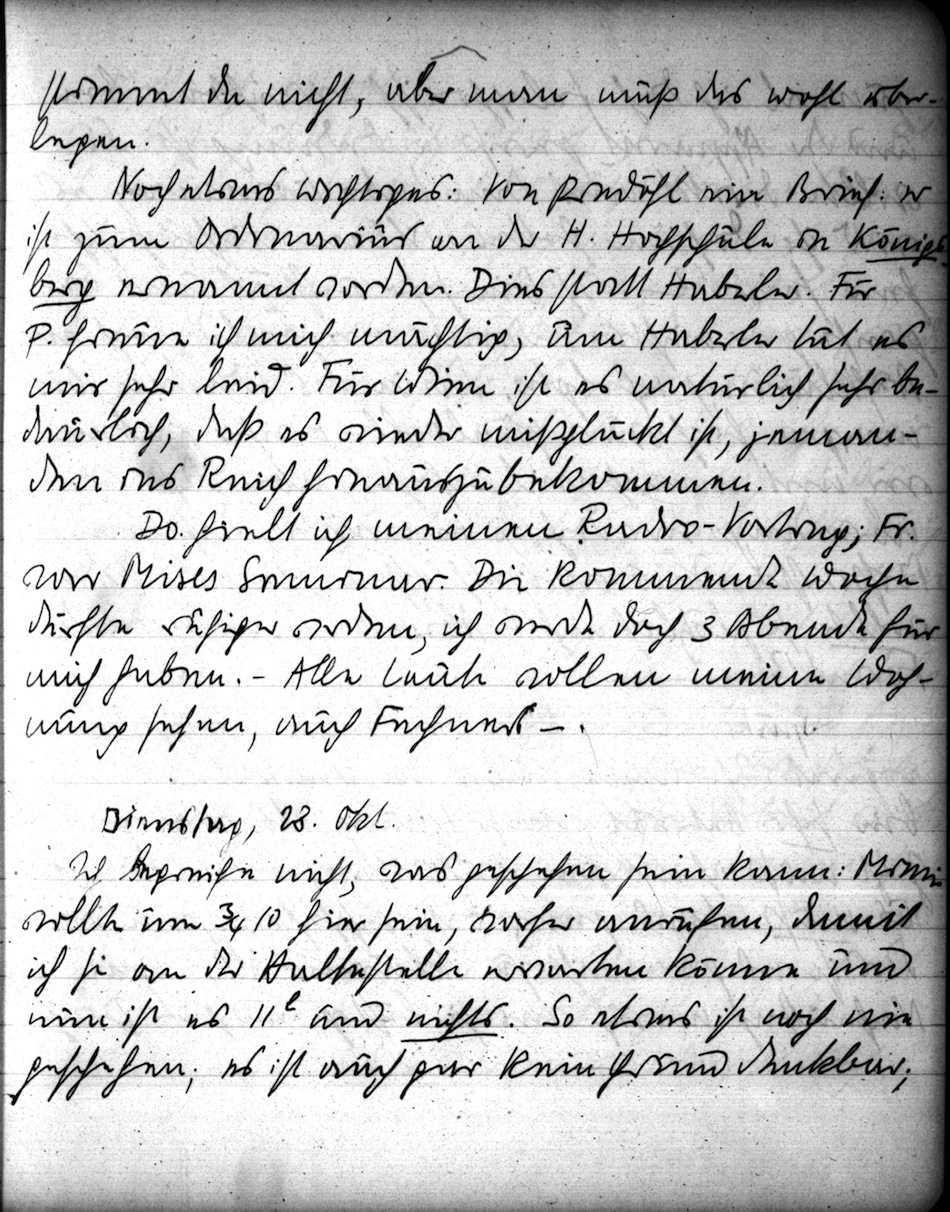 kommt du nicht, aber man muß das wohl über-
legen.
Noch etwas wichtiges: Von Predöhl ein Brief: er
ist zum Ordinarius an der H. Hochschule in Königs-
berg ernannt worden. Dies statt Haberler. Für
P. freue ich mich mächtig, um Haberler tut es
mir sehr leid. Für Wien ist es natürlich sehr be-
dauerlich, daß es wieder mißglückt ist, jeman-
den ins Reich hinauszubekommen.
Do. hielt ich meinen Radio-Vortrag; Fr.
war Mises Seminar. Die kommende Woche
dürfte ruhiger werden, ich werde doch 3 Abende für
mich haben. – Alle Leute wollen meine Woh-
nung sehen, auch Fechners – .
Dienstag, 28. Okt.
Ich begreife nicht, was geschehen sein kann:
wollte um ¾ 10 hier sein, vorher anrufen, damit
ich sie an der Haltestelle erwarten könne und
nun ist es 11h und nichts. So etwas ist noch nie
geschehen; es ist auch gar kein Grund denkbar;